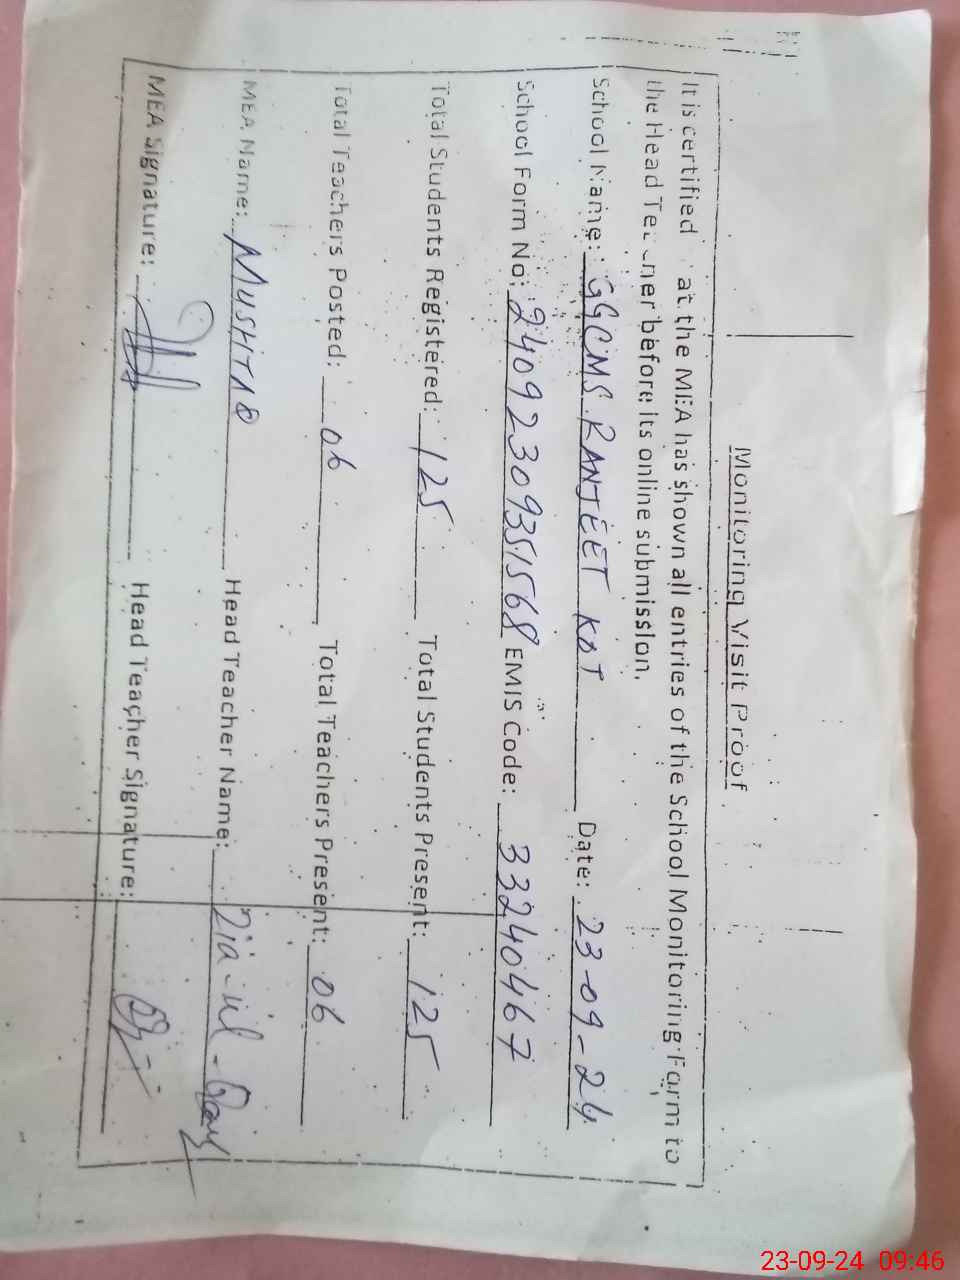 Monitoring Visit Proof
It is certified at the MEA has shown all entries of the School Monitoring Form to
the Head Teacher before its online submission.
School Name: GGCMS RANJEET KOT Date: 23-09-24
School Form No: 24092309351568 EMIS Code: 33240467
Total Students Registered: 125 Total Students Present: 125
Total Teachers Posted: 06 Total Teachers Present: 06
MEA Name: MUSHTAQ Head Teacher Name: Zia-ul-
MEA Signature: Head Teacher Signature:
23-09-24 09:46